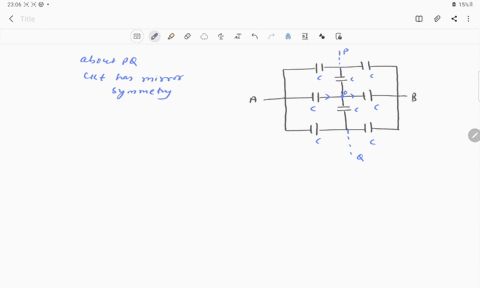 23:06
15%
Title
about PQ
ckt has mirror
symmetry
P
C C
C
A C C B
C
C C
Q